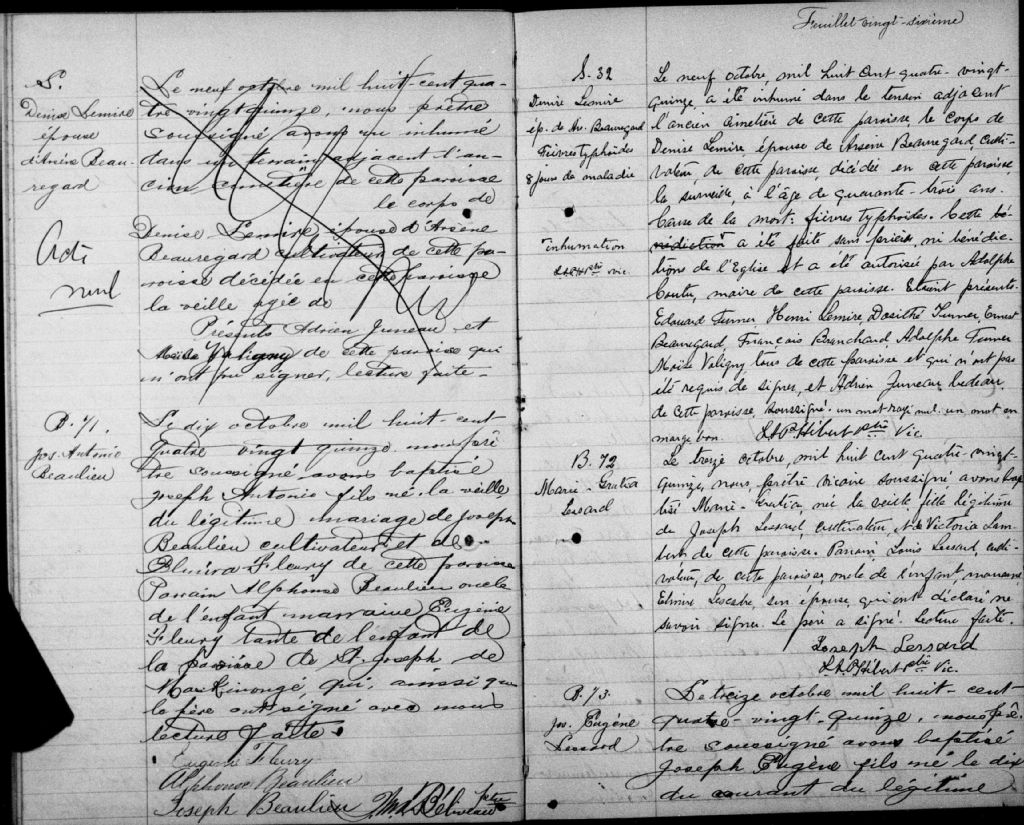 S.
Denise Lemire
épouse
d'Arsène Beau-
regard
Acte
nul
Le neuf octobre mil huit-cent qua-
tre vingt quinze, nous prêtre
soussigné avons inhumé
dans un terrain adjacent l'an-
cien cimetière de cette paroisse
le corps de
Denise Lemire épouse d'Arsène
Beauregard cultivateur de cette pa-
roisse décédée en cette paroisse
la veille agée de
Présents Adrien Juneau et
Moïse Valigny de cette paroisse qui
n'ont pu signer, lecture faite-
B. 71.
Jos. Antonio
Beaulieu
Le dix octobre mil huit-cent
quatre vingt quinze nous prê
tre soussigné avons baptisé
Joseph Antonio fils né la veille
du légitime mariage de Joseph
Beaulieu cultivateur et de
Fleury de cette paroisse
Parrain Alphonse Beaulieu oncle
de l'enfant marraine Eugénie
Fleury tante de l'enfant de
la paroisse de St. Joseph de
Maskinongé, qui, ainsi que
le père ont signé avec nous
lecture faite.
Eugénie Fleury
Alphonse Beaulieu
Joseph Beaulieu ptre
Feuillet vingt-sixième
S-32
Denise Lemire
ép. de Ar. Beauregard
Fièvres typhoïdes
8 jours de maladie
inhumation
vic.
Le neuf octobre mil huit cent quatre-vingt-
quinze, a été inhumé dans le terrain adjacent
l'ancien cimetière de cette paroisse le corps de
Denise Lemire, épouse de Arsène Beauregard, culti-
vateur de cette paroisse, décédée en cette paroisse,
la surveille, à l'âge de quarante-trois ans.
Cause de la mort: fièvres typhoïdes. Cette bé-
nédiction a été faite sans prières, ni bénédic-
tions de l'Eglise et a été autorisée par Adolphe
Coutu, maire de cette paroisse. Etaient présents
Edouard Turner Henri Lemire, Dosithé Turner, Ernest
Beauregard, François Branchard, Adolphe Turner
Moïse Valigny tous de cette paroisse et qui n'ont pas
été requis de signer, et Adrien Juneau, bedeau,
de cette paroisse, soussigné. un mot rayé nul. un mot en
marge bon. Hébert ptre Vic.
B. 72
Marie-Gratia
Lessard
Le treize octobre, mil huit cent quatre-vingt-
quinze, nous, prêtre vicaire soussigné avons bap
tisé Marie-Gratia, née la veille, fille légitime
de Joseph Lessard, cultivateur, et de Victoria Lam
bert de cette paroisse. Parrain, Louis Lessard, culti-
vateur, de cette paroisse, oncle de l'enfant, marraine
Elmire son épouse, qui ont déclaré ne
savoir signer. Le père a signé. Lecture faite.
Joseph Lessard
Hébert ptre Vic.
B. 73.
Jos. Eugène
Lessard
Le treize octobre mil huit-cent-
quatre-vingt-quinze, nous prê-
tre soussigné avons baptisé
Joseph Eugène fils né le dix
du courant du légitime